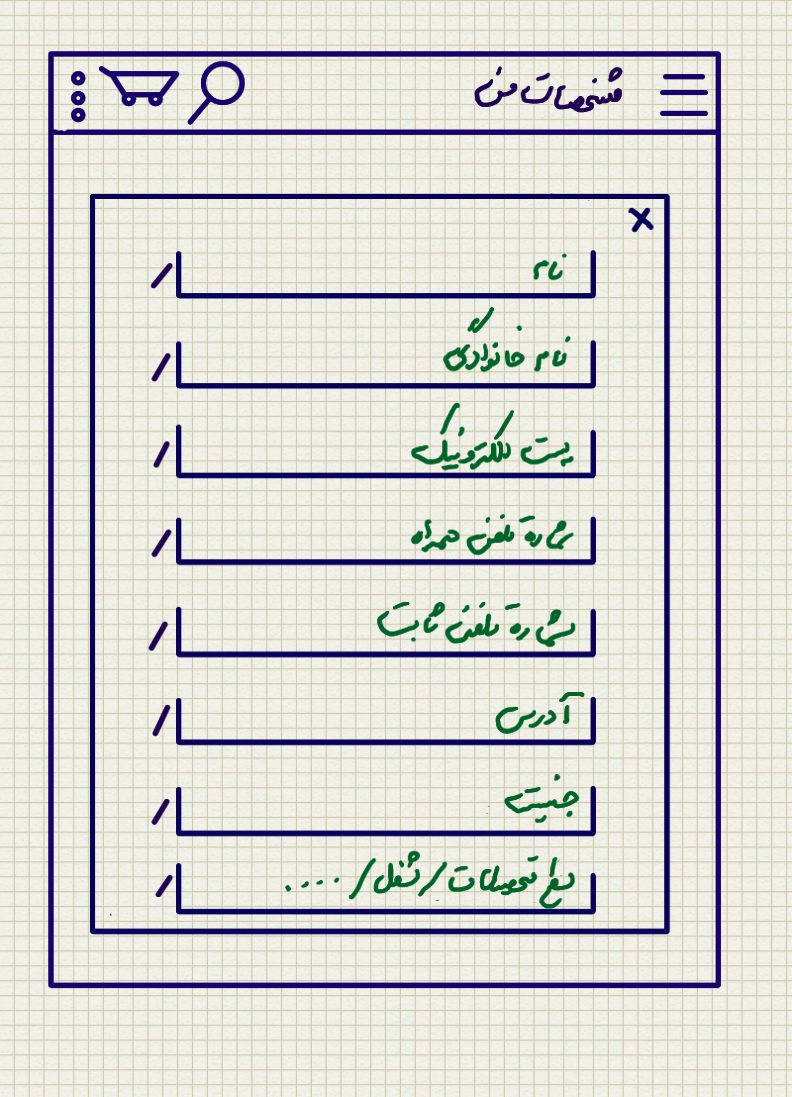 مشخصات من
x
نام
نام خانوادگی
پست الکترونیک
شماره تلفن همراه
شماره تلفن ثابت
آدرس
جنسیت
سطح تحصیلات / شغل / ....